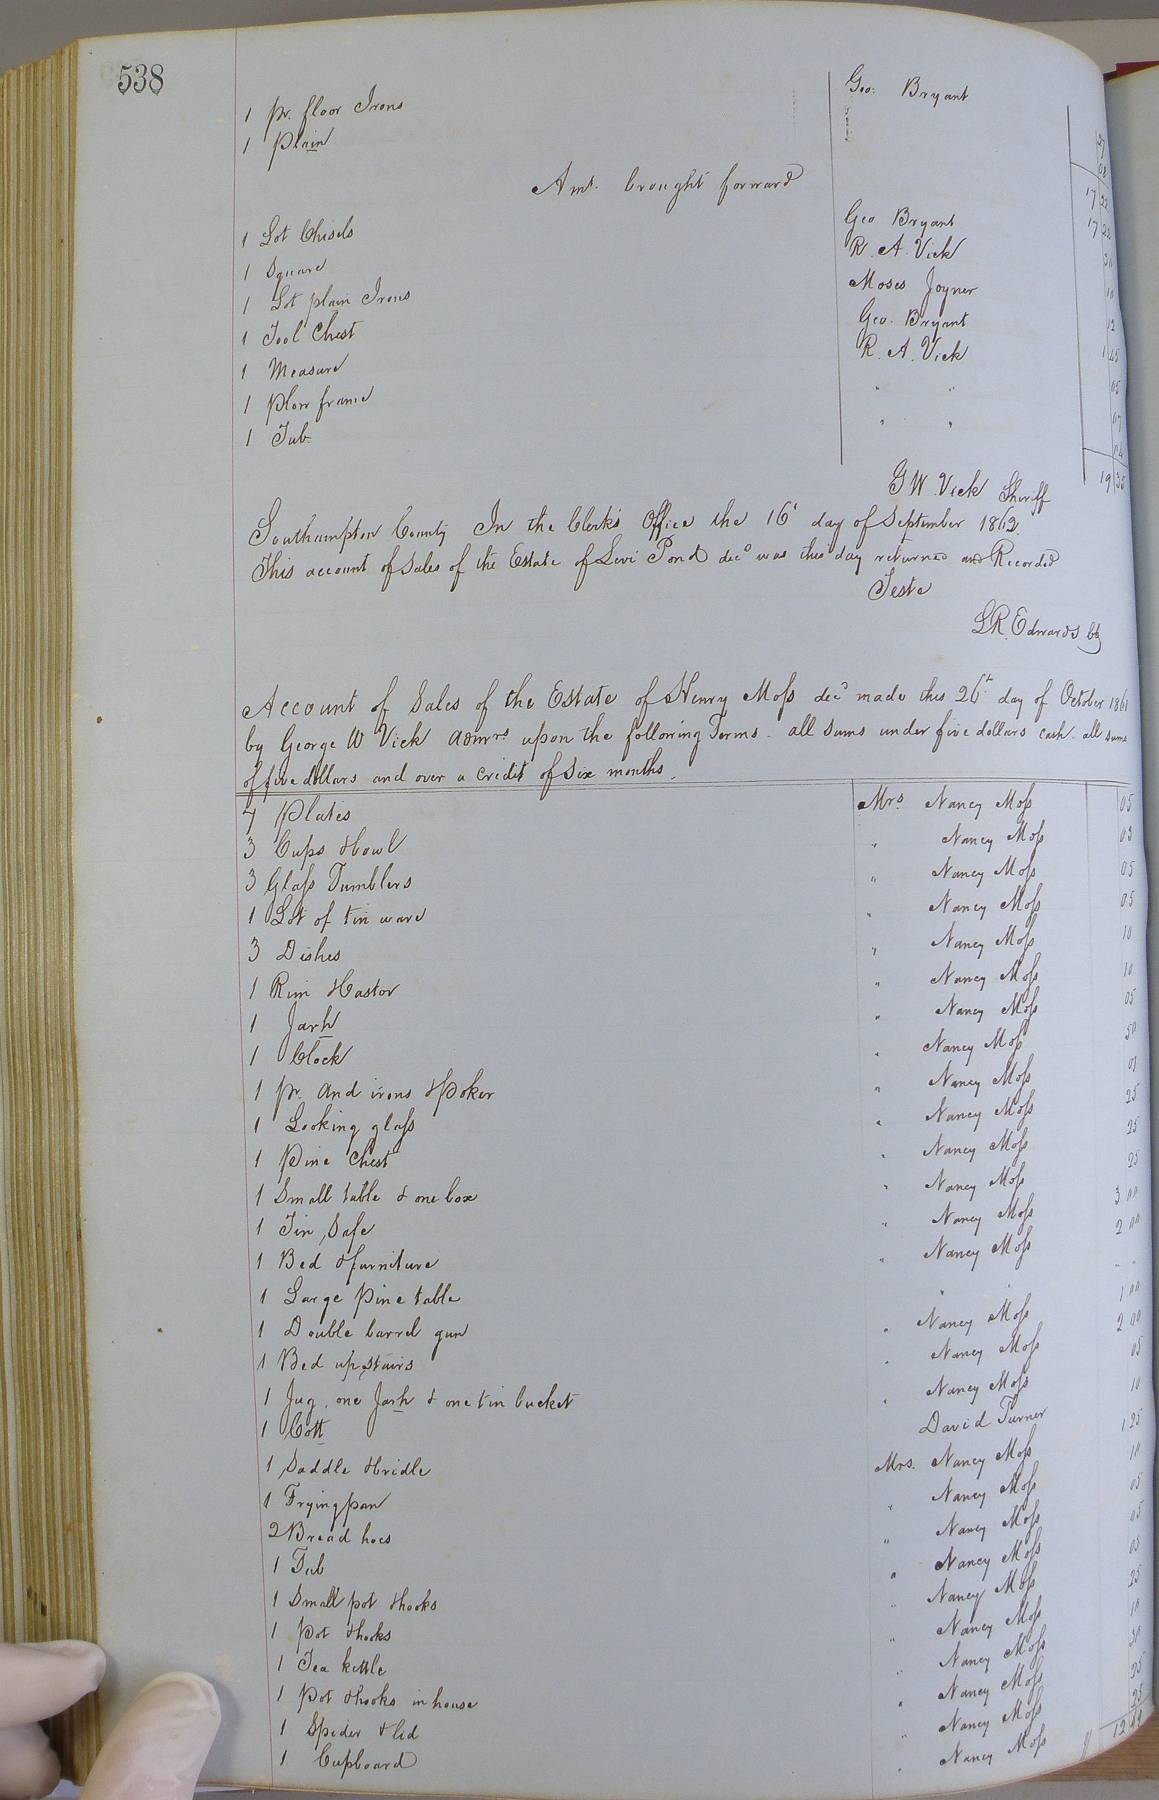 538
1 pr. floor Irons Geo: Bryant
1 Plain 08
17 22
Amt. brought forward 17 22
1 Lot Chisels Geo Bryant 30
1 Square R. A. Vick 10
1 Lot plain Irons Moses Joyner 12
1 Tool Chest Geo. Bryant 1 45
1 Measure R. A. Vick 05
1 Plow frame " " 07
1 Tub " " 04
19 35
G W. Vick Sheriff
Southampton County In the Clerks Office the 16t day of September 1862.
This account of Sales of the Estate of Levi Pond decd was this day returned and Recorded
Teste
L R. Edwards
Account of Sales of the Estate of Henry Moss decd made this 26th day of October 1861
by George W Vick admrs upon the following Terms. all sums under five dollars cash. all sums
of five dollars and over a credit of six months.
7 Plates Mrs. Nancy Moss 05
3 Cups & bowl " Nancy Moss 03
3 Glass Tumblers " Nancy Moss 05
1 Lot of tin ware " Nancy Moss 05
3 Dishes " Nancy Moss 10
1 Rim & Castor " Nancy Moss 10
1 Jarh " Nancy Moss 05
1 Clock " Nancy Moss 50
1 pr. and irons & poker " Nancy Moss 01
1 Looking glass " Nancy Moss 25
1 Pine Chest " Nancy Moss 25
1 Small table & one box " Nancy Moss 25
1 Tin Safe " Nancy Moss 3 00
1 Bed & furniture " Nancy Moss 2 00
1 Large Pine table " " " "
1 Double barrel gun " Nancy Moss 1 00
1 Bed up stairs " Nancy Moss 2 00
1 Jug, one Jarh & one tin bucket " Nancy Moss 05
1 Cott David Turner 10
1 Saddle & bridle Mrs. Nancy Moss 1 25
1 Frying pan " Nancy Moss 10
2 Bread hoes " Nancy Moss 05
1 Tub " Nancy Moss 05
1 Small pot & hooks " Nancy Moss 05
1 Pot & hooks " Nancy Moss 25
1 Tea kettle " Nancy Moss 10
1 Pot & hooks in house " Nancy Moss 30
1 Spider & lid " Nancy Moss 25
1 Cupboard " Nancy Moss 25
12